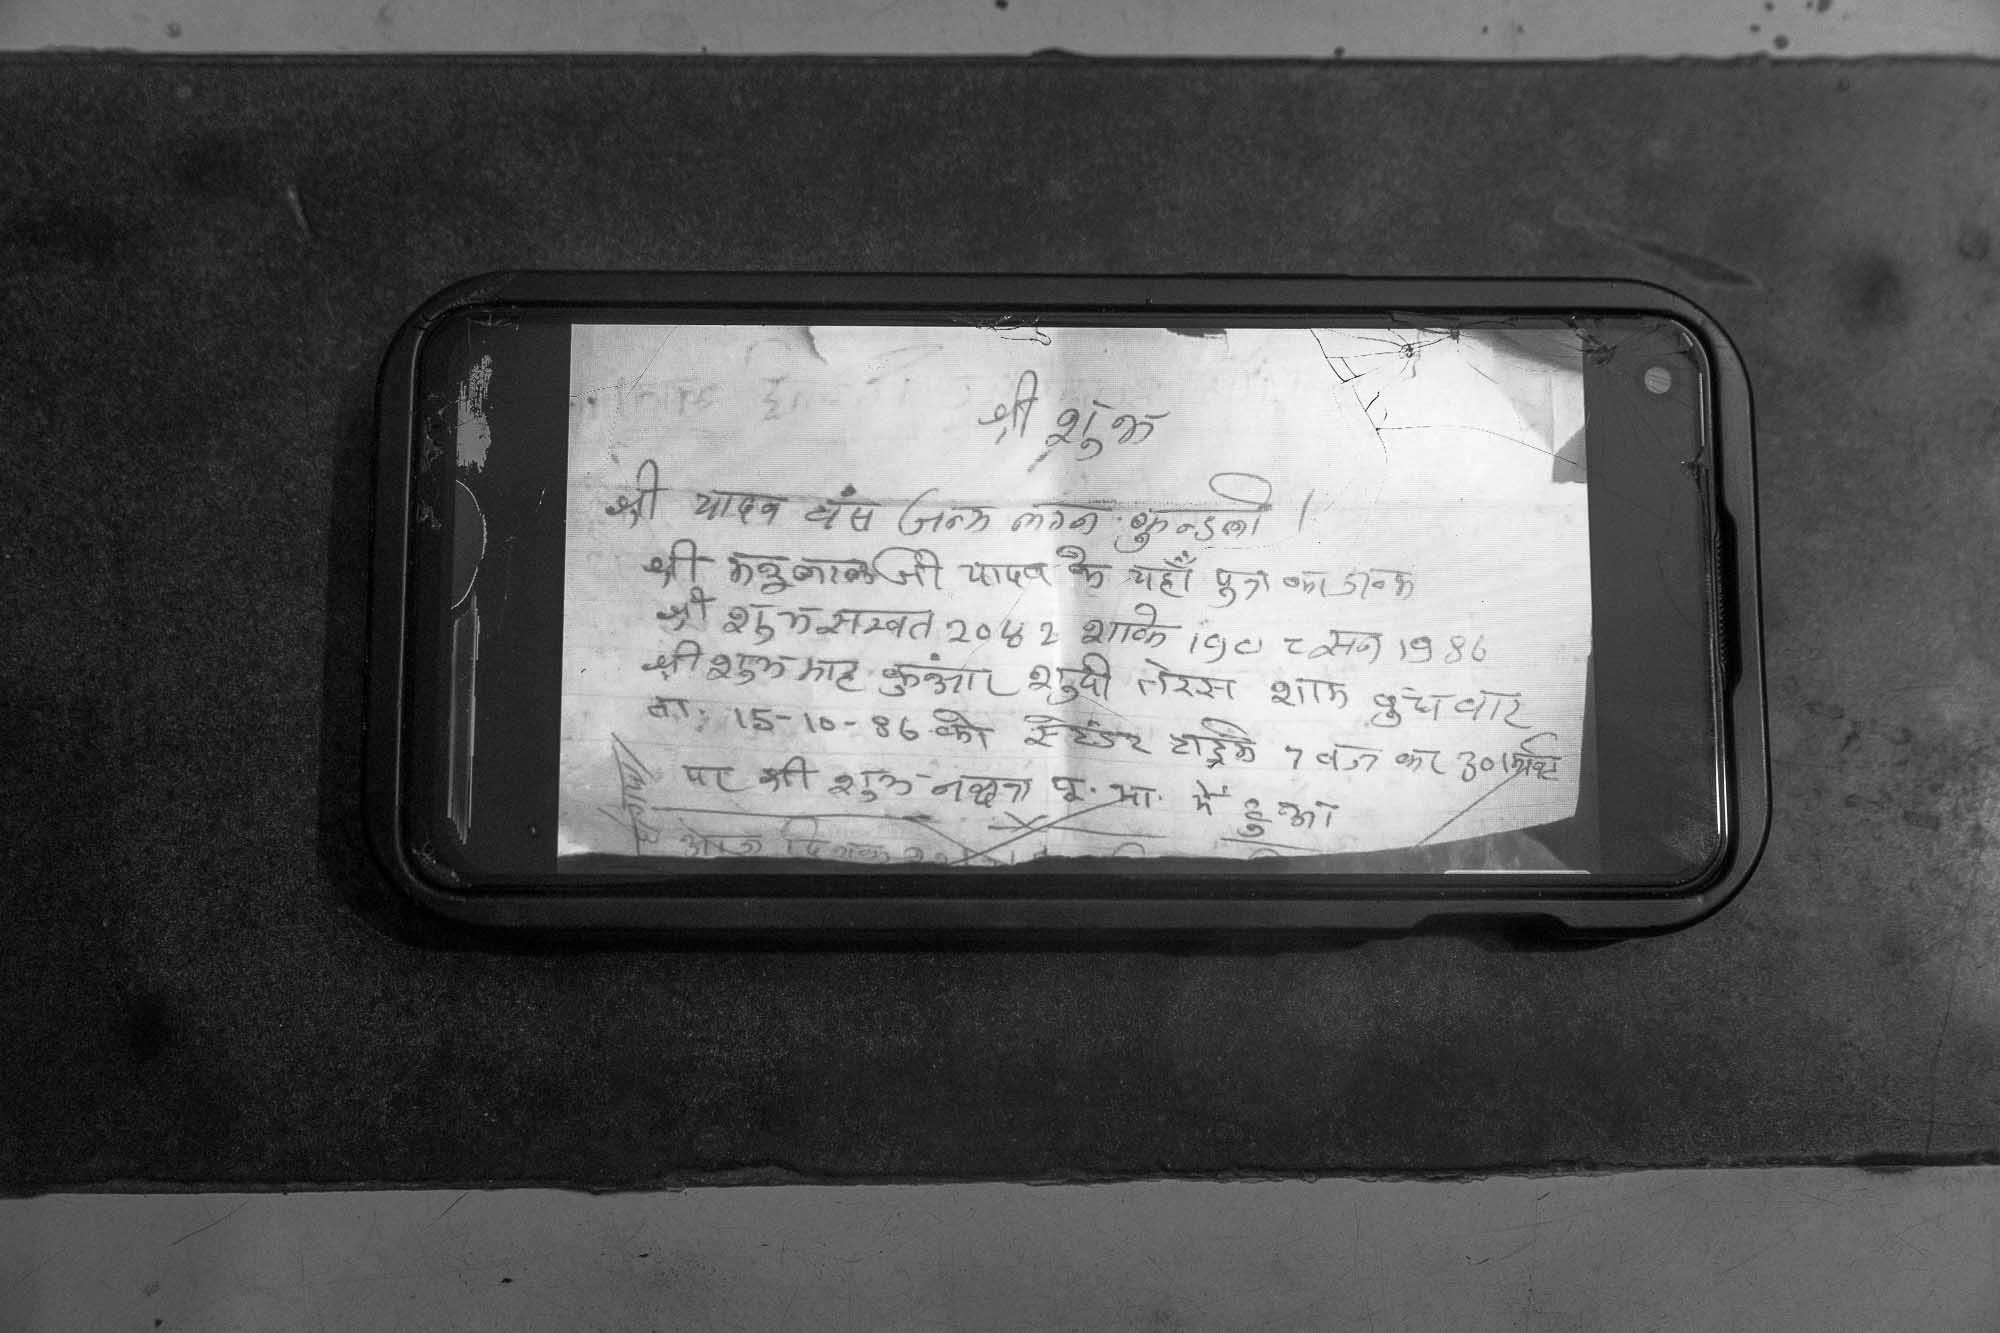 श्री शुभ
श्री यादव वंस जन्म लगन कुन्डली ।
श्री मनुलालजी यादव के यहाँ पुत्र का जन्म
श्री शुभ सम्वत २०४२ शाके १९०८ सन 1986
श्री शुभ माह कुंआर शुदी तेरस शाम बुधवार
ता. 15-10-86 को स्टेंडर टाईम 7 बज कर 30 मिनिट
पर श्री शुभ नक्षत्र पू. भा. में हुआ